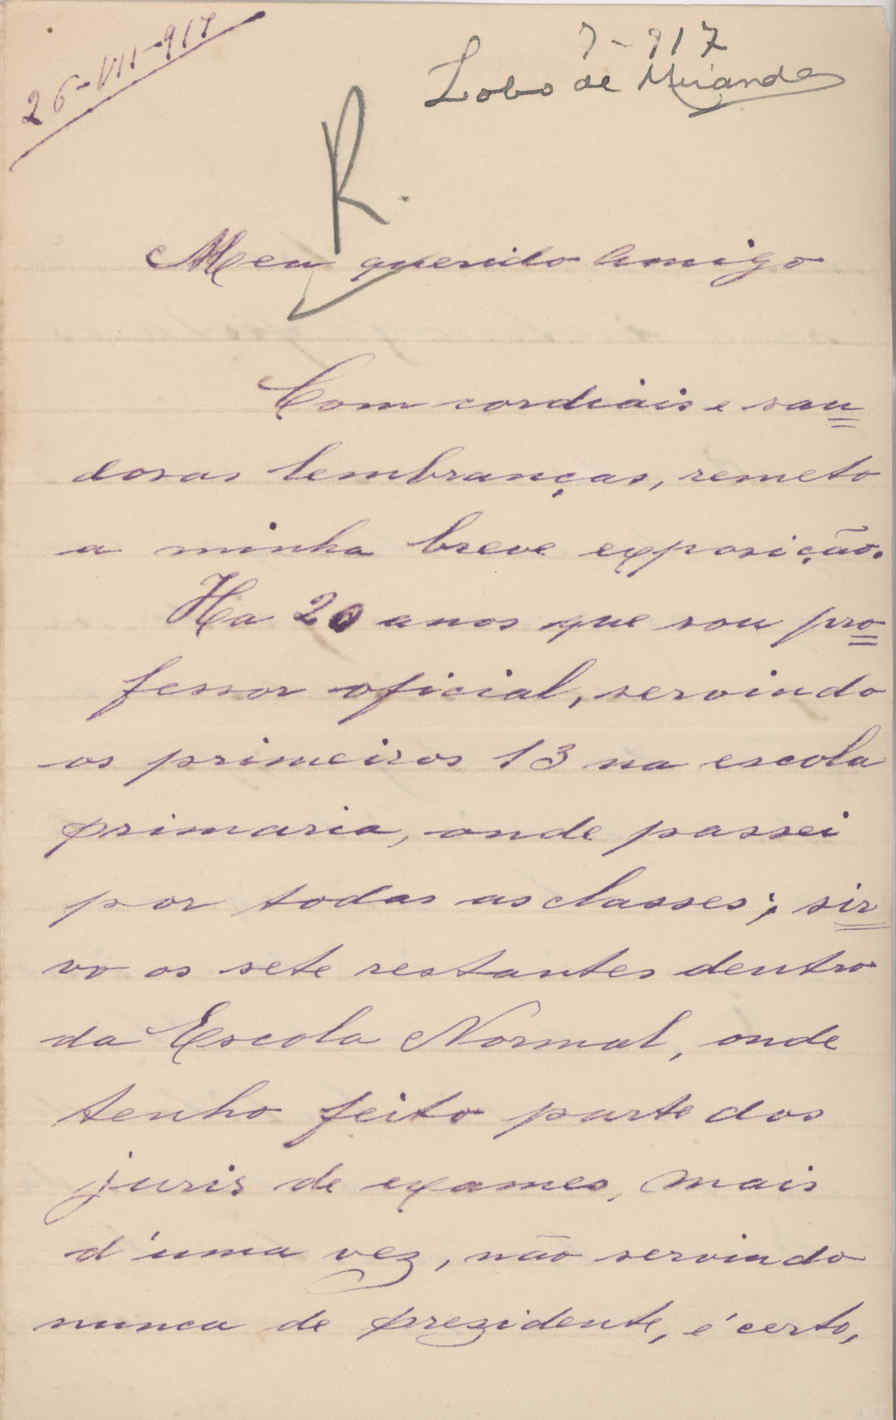 26-VII-917
7-917
Lobo de Miranda
R.
Meu querido Amigo
Com cordiais e sau
dosas lembranças, remeto
a minha breve exposição.
Ha 20 anos que sou pro
fessor oficial, servindo
os primeiros 13 na escola
primaria, onde passei
por todas as classes; sir
vo os sete restantes dentro
da Escola Normal, onde
tenho feito parte dos
juris de exames, mais
d'uma vez, não servindo
nunca de prezidente, é certo,